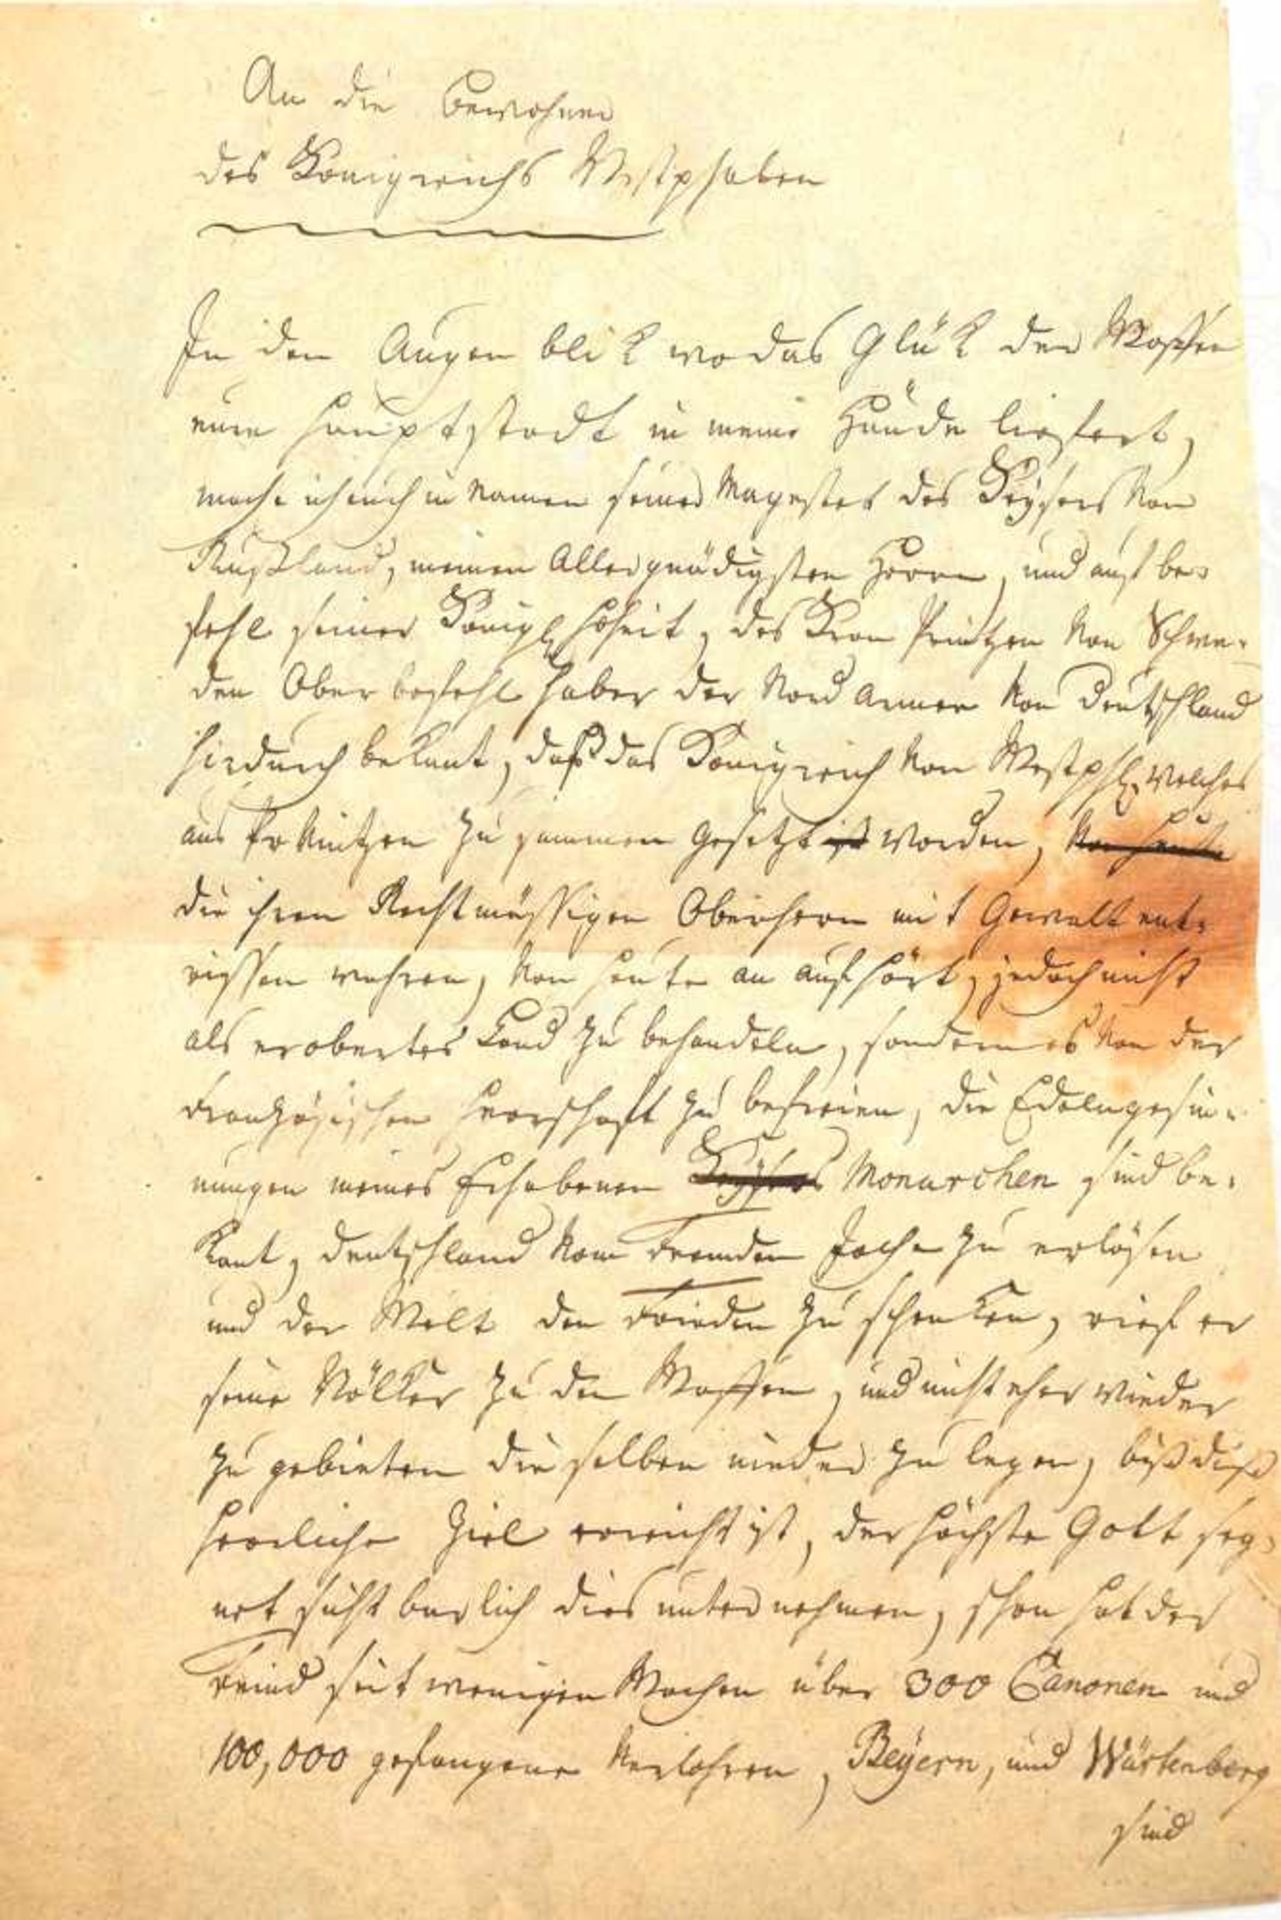 An die Bewohner
des Königreichs Westphalen
In den Augen blik wo das Glük der Waffen
eure Hauptstadt in meine Hände liefert,
mache ich euch in Namen seiner Magestet des Keysers Von
Rußland, meinen Allergnädigsten Herrn, und auf be-
fehl seiner Königl Hoheit, des Kron Printzen Von Schwe-
den Ober befehl haber der Nord Armee Von Deutschland
hirdurch bekant, daß das Königreich Von Westphl. welches
aus Provintzen zu sammen gesetzt ist worden, Von heute
die ihren Rechtmässigen Oberherrn mit Gewalt ent-
rissen wahren, Von heute an aufhört, jedoch nicht
als erobertes Land zu behandeln, sondern es Von der
Französischen Herrschaft zu befreien, die Edelngesin-
nungen meines Erhabenen Keysers Monarchen sind be-
kant, Deutschland Vom Fremden Joche zu erlösen
und der Welt den Frieden zu schenken, rief er
seine Völker zu den Waffen, und nicht eher wieder
zu gebieten die selben nieder zu legen, biß dieß
herrliche Ziel erreicht ist, der höchste Gott seg-
net sicht barlich dies unternehmen, schon hat der
Feind seit wenigen Wochen über 300 Canonen und
100,000 gefangene Verlohren, Beyern, und Würtenberg
sind